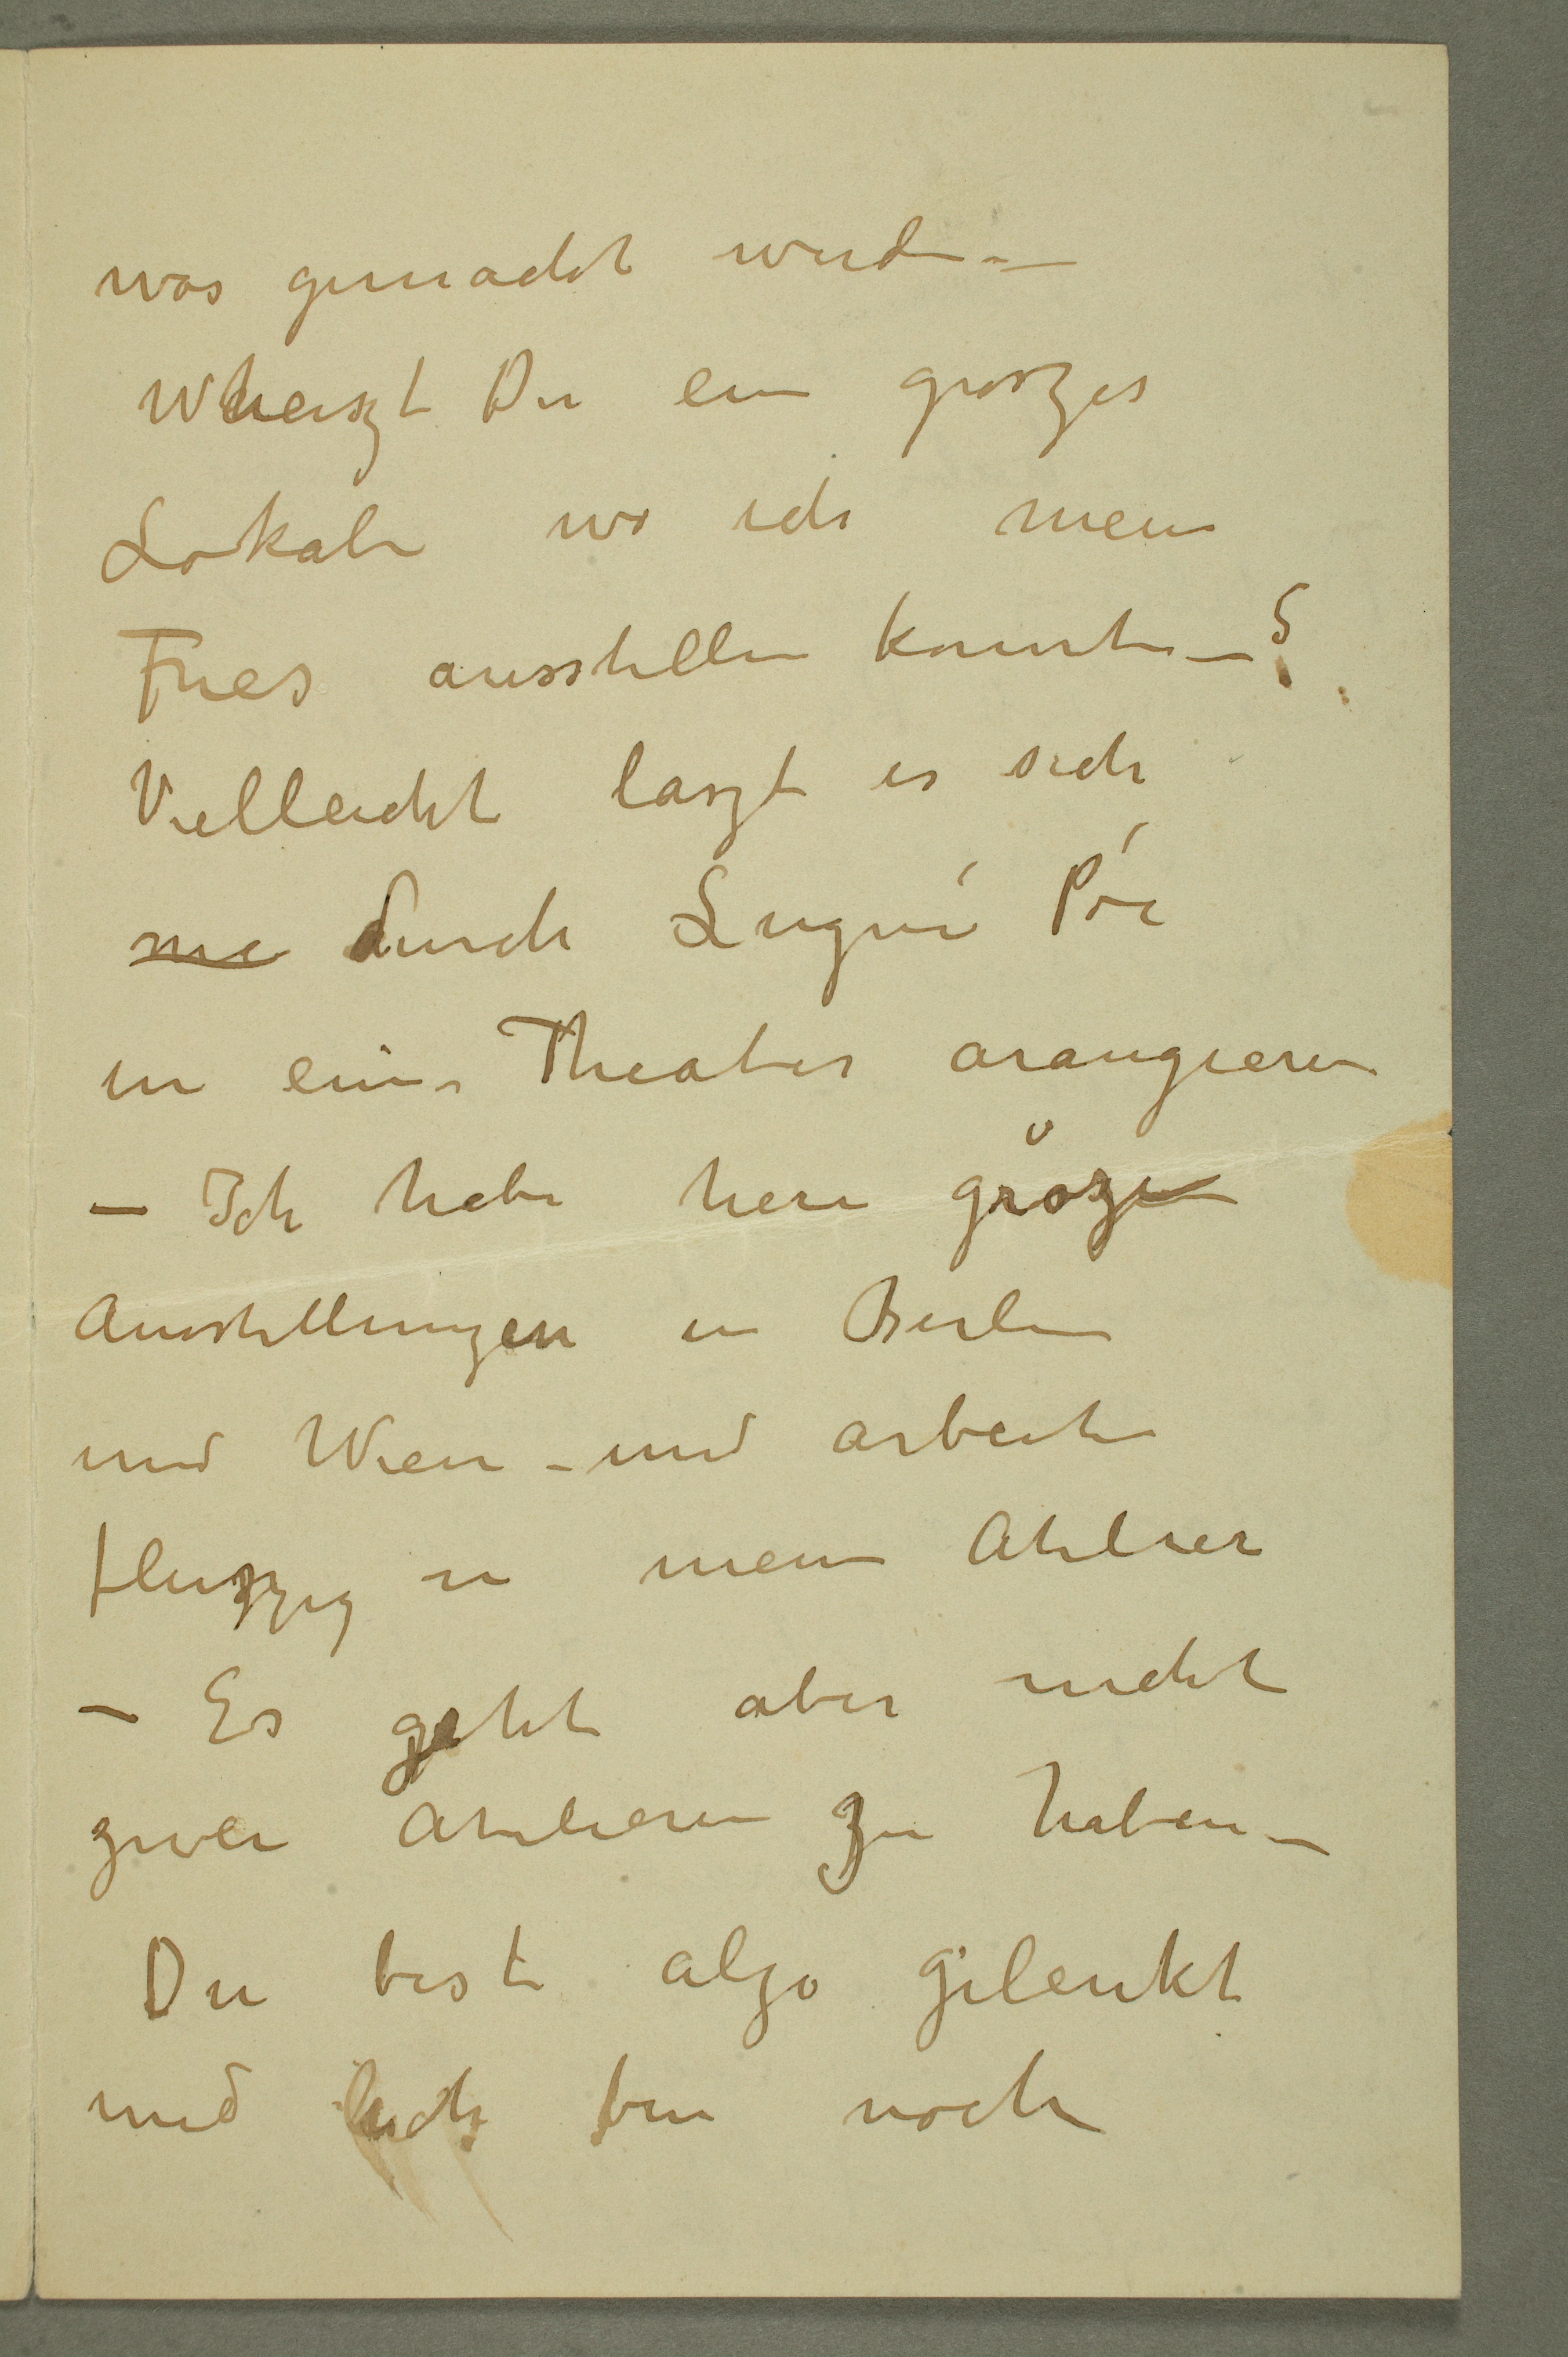 was gemacht werden –
Wheiszt Du ein groszes
Lokale wo ich mein
Fries ausstellen konnte –?
Vielleicht laszt es sich
me durch Lugné Póe
in eine Theater arangieren
– Ich habe hier grősze
Ausstellungen in Berlin
und Wien – und arbeite
fleiszig in mein Atelier
– Es geht aber nicht
zwei Atelieren zu haben –
Du bist alzo gelenkt
und ich bin noch